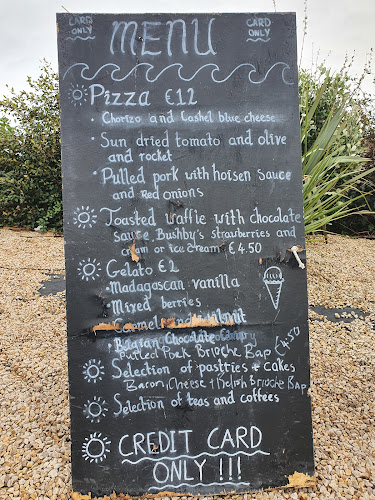 CARD ONLY
MENU
CARD ONLY
Pizza €12
• Chorizo and Cashel blue cheese
• Sun dried tomato and olive
and rocket
• Pulled pork with hoisen sauce
and Red onions
Toasted waffle with chocolate
sauce, Bushby's strawberries and
cream or ice cream €4.50
Gelato €2
• Madagascan vanilla
• Mixed berries
• Caramel and
• Belgian Chocolate
Pulled Pork Brioche Bap €4.50
Selection of pastries + cakes
Bacon, Cheese + Relish Brioche Bap
Selection of teas and coffees
CREDIT CARD
ONLY !!!